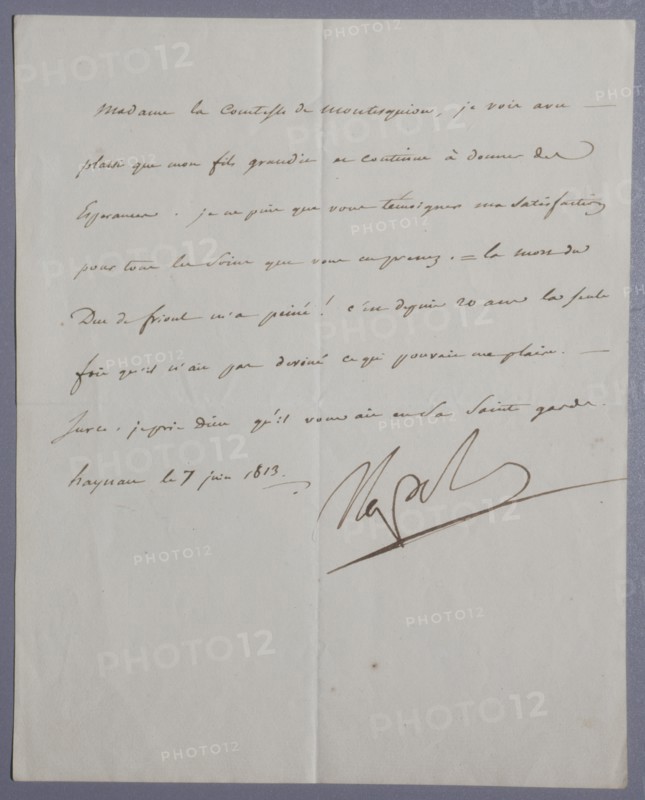 Madame la Comtesse de Montesquiou, je vois avec
plaisir que mon fils grandit et continue à donner des
Esperances. je ne puis que vous témoigner ma satisfaction
pour tous les Soins que vous en prenez. = la mort du
Duc de frioul m'a peiné! c'est depuis 20 ans la seule
fois qu'il n'ait pas deviné ce qui pouvait me plaire. —
Sur ce, je prie Dieu qu'il vous ait en Sa Sainte garde.
haynau le 7 juin 1813.
Nap
PHOTO12